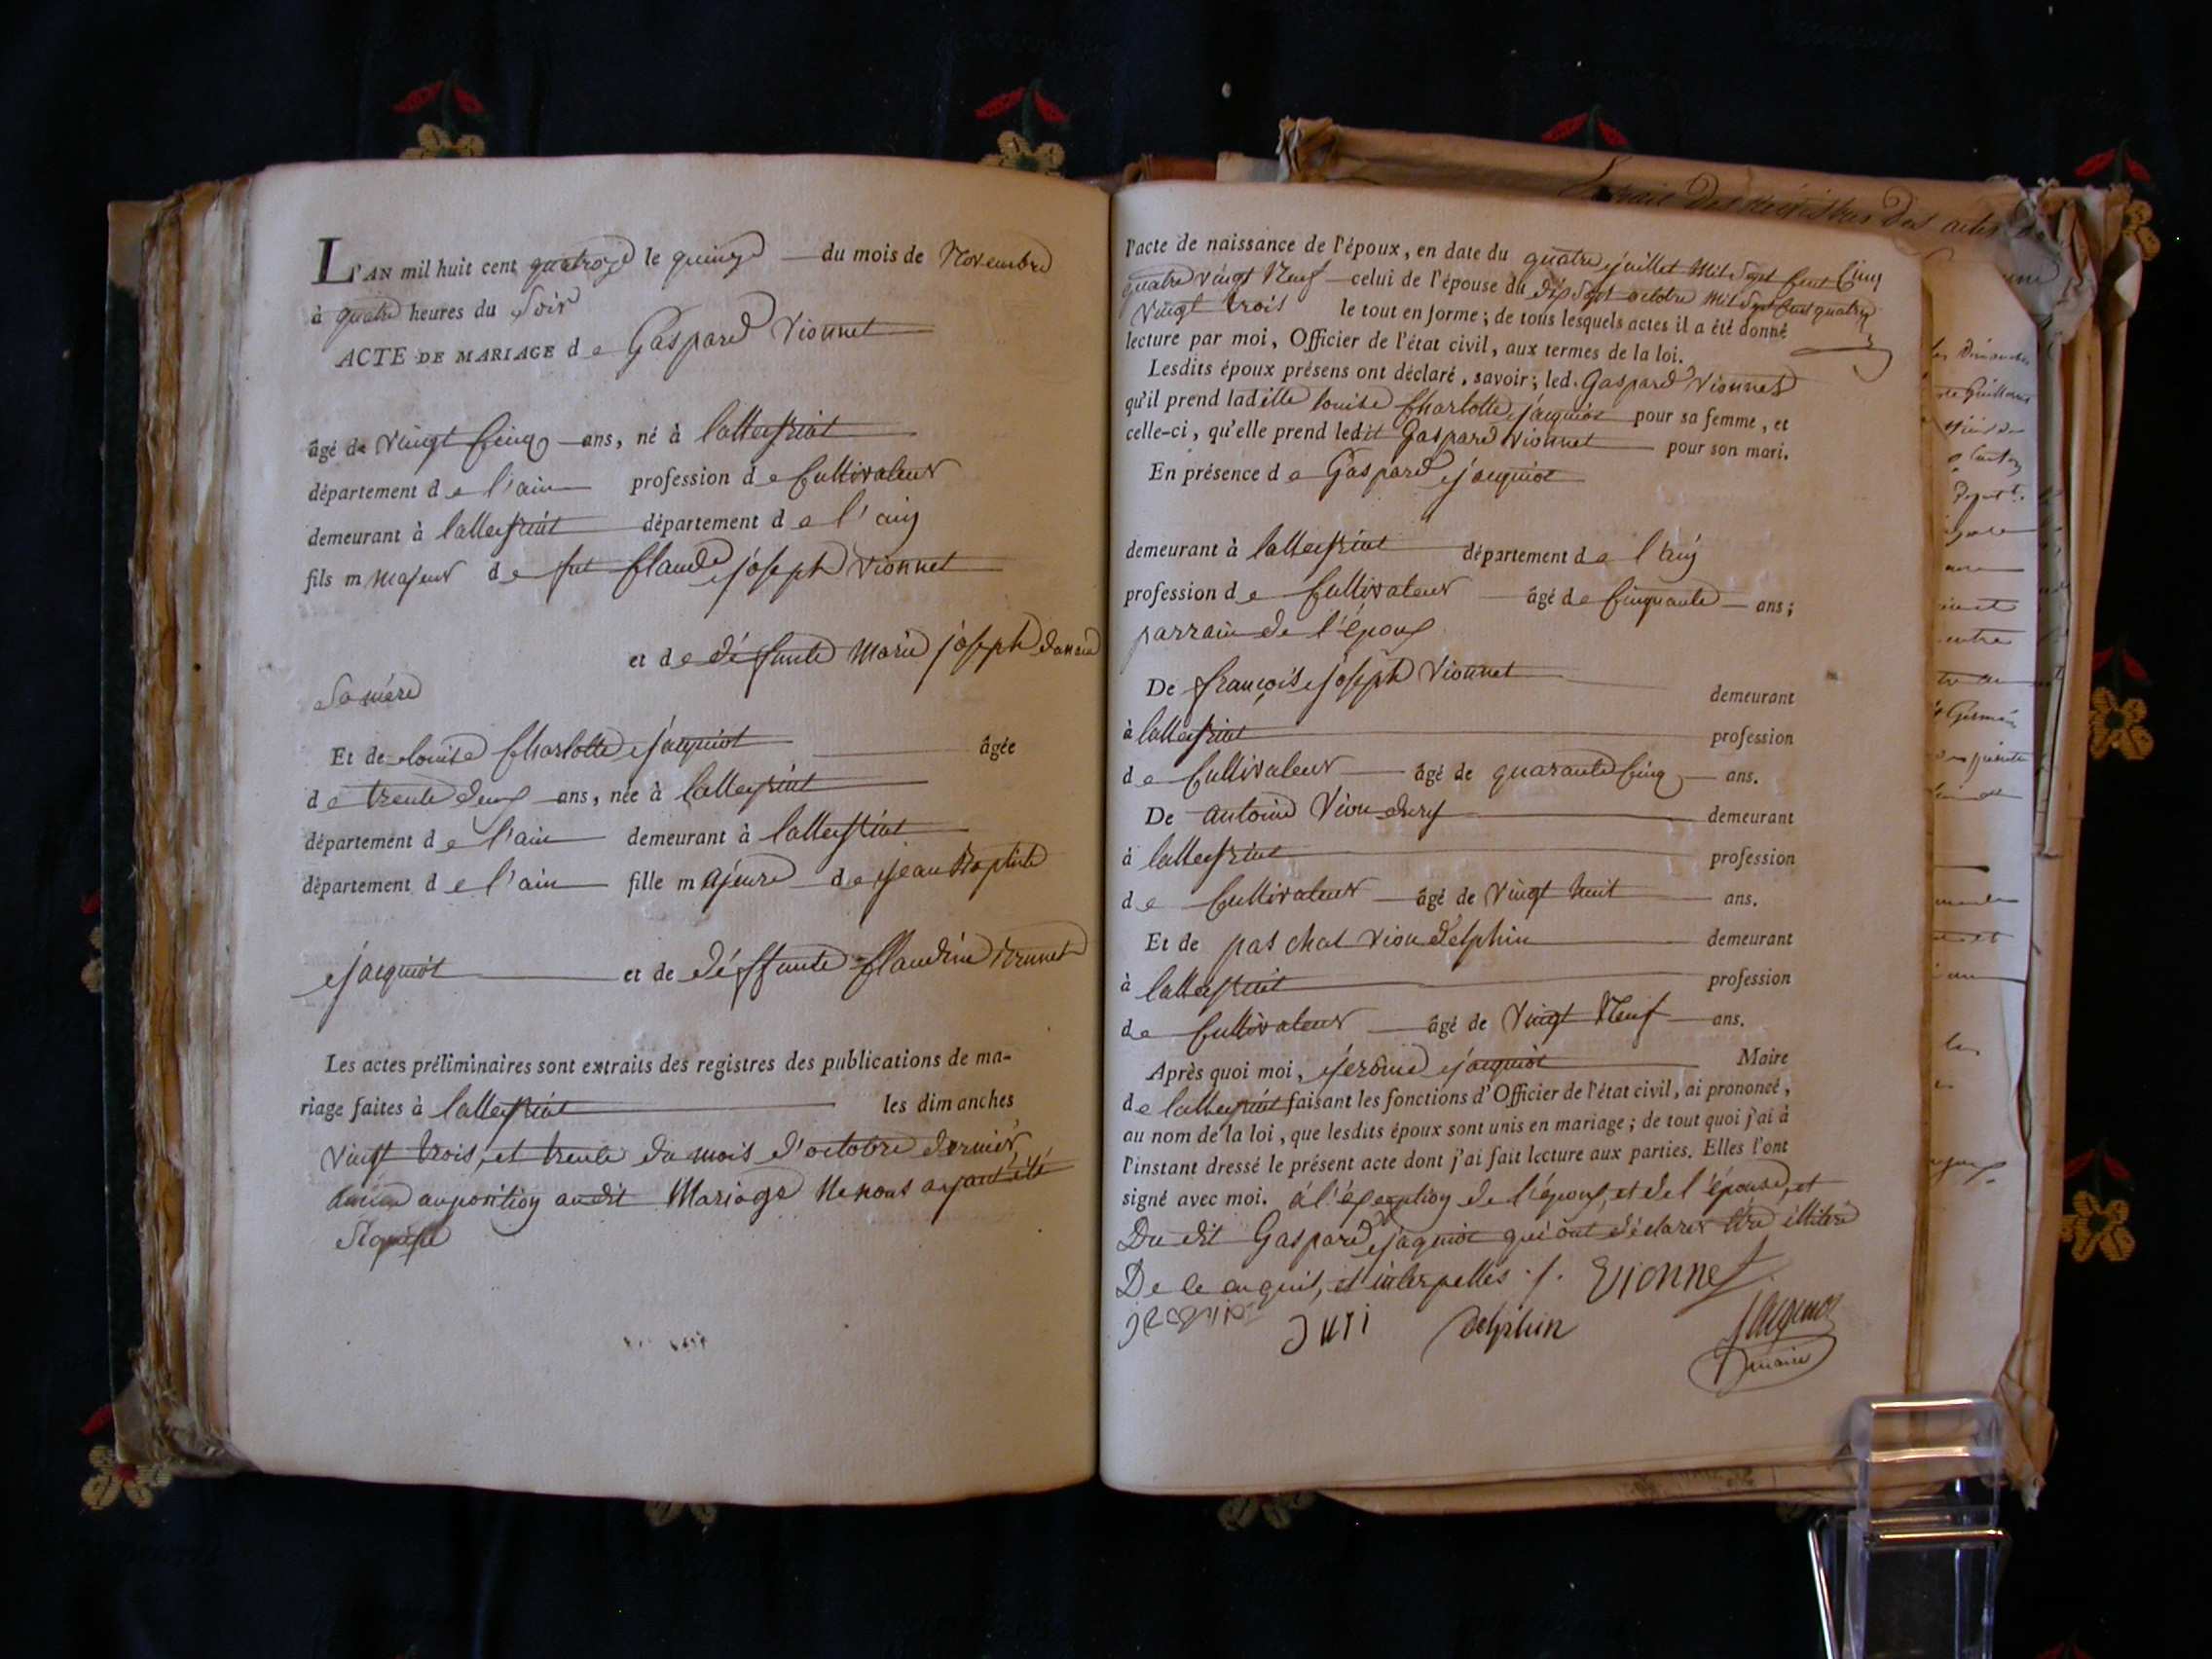 L'AN mil huit cent quatorze le quinze du mois de Novembre
à quatre heures du Soir
ACTE DE MARIAGE de Gaspard Vionnet
âgé de vingt cinq ans, né à lalleyriat
département de l'ain profession de Cultivateur
demeurant à lalleyriat département de l'ain
fils m majeur de fut Claude joseph Vionnet
et de défunte Marie joseph
Sa mére
Et de louise Charlotte jacquiot âgée
de trente deux ans, née à lalleyriat
département de l'ain demeurant à lalleyriat
département de l'ain fille majeure de jean Baptiste
jacquiot et de déffunte Claudine Brunet
Les actes préliminaires sont extraits des registres des publications de ma-
riage faites à lalleyriat les dimanches
vingt trois, et trente du mois d'octobre dernier,
aucune auposition audit Mariage Ne nous ayant été
Signifié
l'acte de naissance de l'époux, en date du quatre juillet Mil Sept Cent
quatre vingt Neuf celui de l'épouse du dix Sept octobre Mil Sept Cent quatre
Vingt trois le tout en forme; de tous lesquels actes il a été donné
lecture par moi, Officier de l'état civil, aux termes de la loi.
Lesdits époux présens ont déclaré, savoir; led. Gaspard Vionnet
qu'il prend ladite louise Charlotte jacquiot pour sa femme, et
celle-ci, qu'elle prend ledit Gaspard Vionnet pour son mari.
En présence de Gaspard jacquiot
demeurant à lalleyriat département de l'ain
profession de Cultivateur âgé de Cinquante ans;
parrain de l'époux
De françois joseph Vionnet demeurant
à lalleyriat profession
de Cultivateur âgé de quarante Cinq ans.
De antoine Vion dury demeurant
à lalleyriat profession
de Cultivateur âgé de Vingt huit ans.
Et de paschal Vion delphin demeurant
à lalleyriat profession
de Cultivateur âgé de Vingt Neuf ans.
Après quoi moi, jérome jacquiot Maire
de lalleyriat faisant les fonctions d'Officier de l'état civil, ai prononcé,
au nom de la loi, que lesdits époux sont unis en mariage; de tout quoi j'ai à
l'instant dressé le présent acte dont j'ai fait lecture aux parties. Elles l'ont
signé avec moi. à l'éxeption de l'époux, et de l'épouse, et
Du dit Gaspard jaquiot qui ont déclarer être illitéré
De ce enquit, et interpellés ./. Vionnet
juri delphin jacquiot
maire
Extrait des Régistres des actes